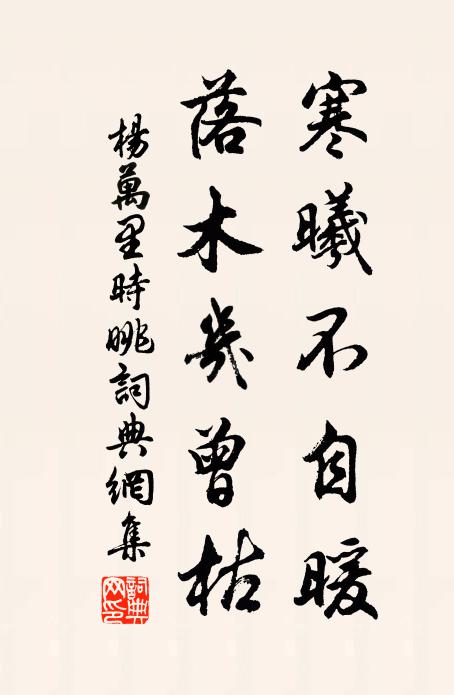 寒曦不自暖
落木幾曾枯
楊萬里時眺詞典網集
詞典網印